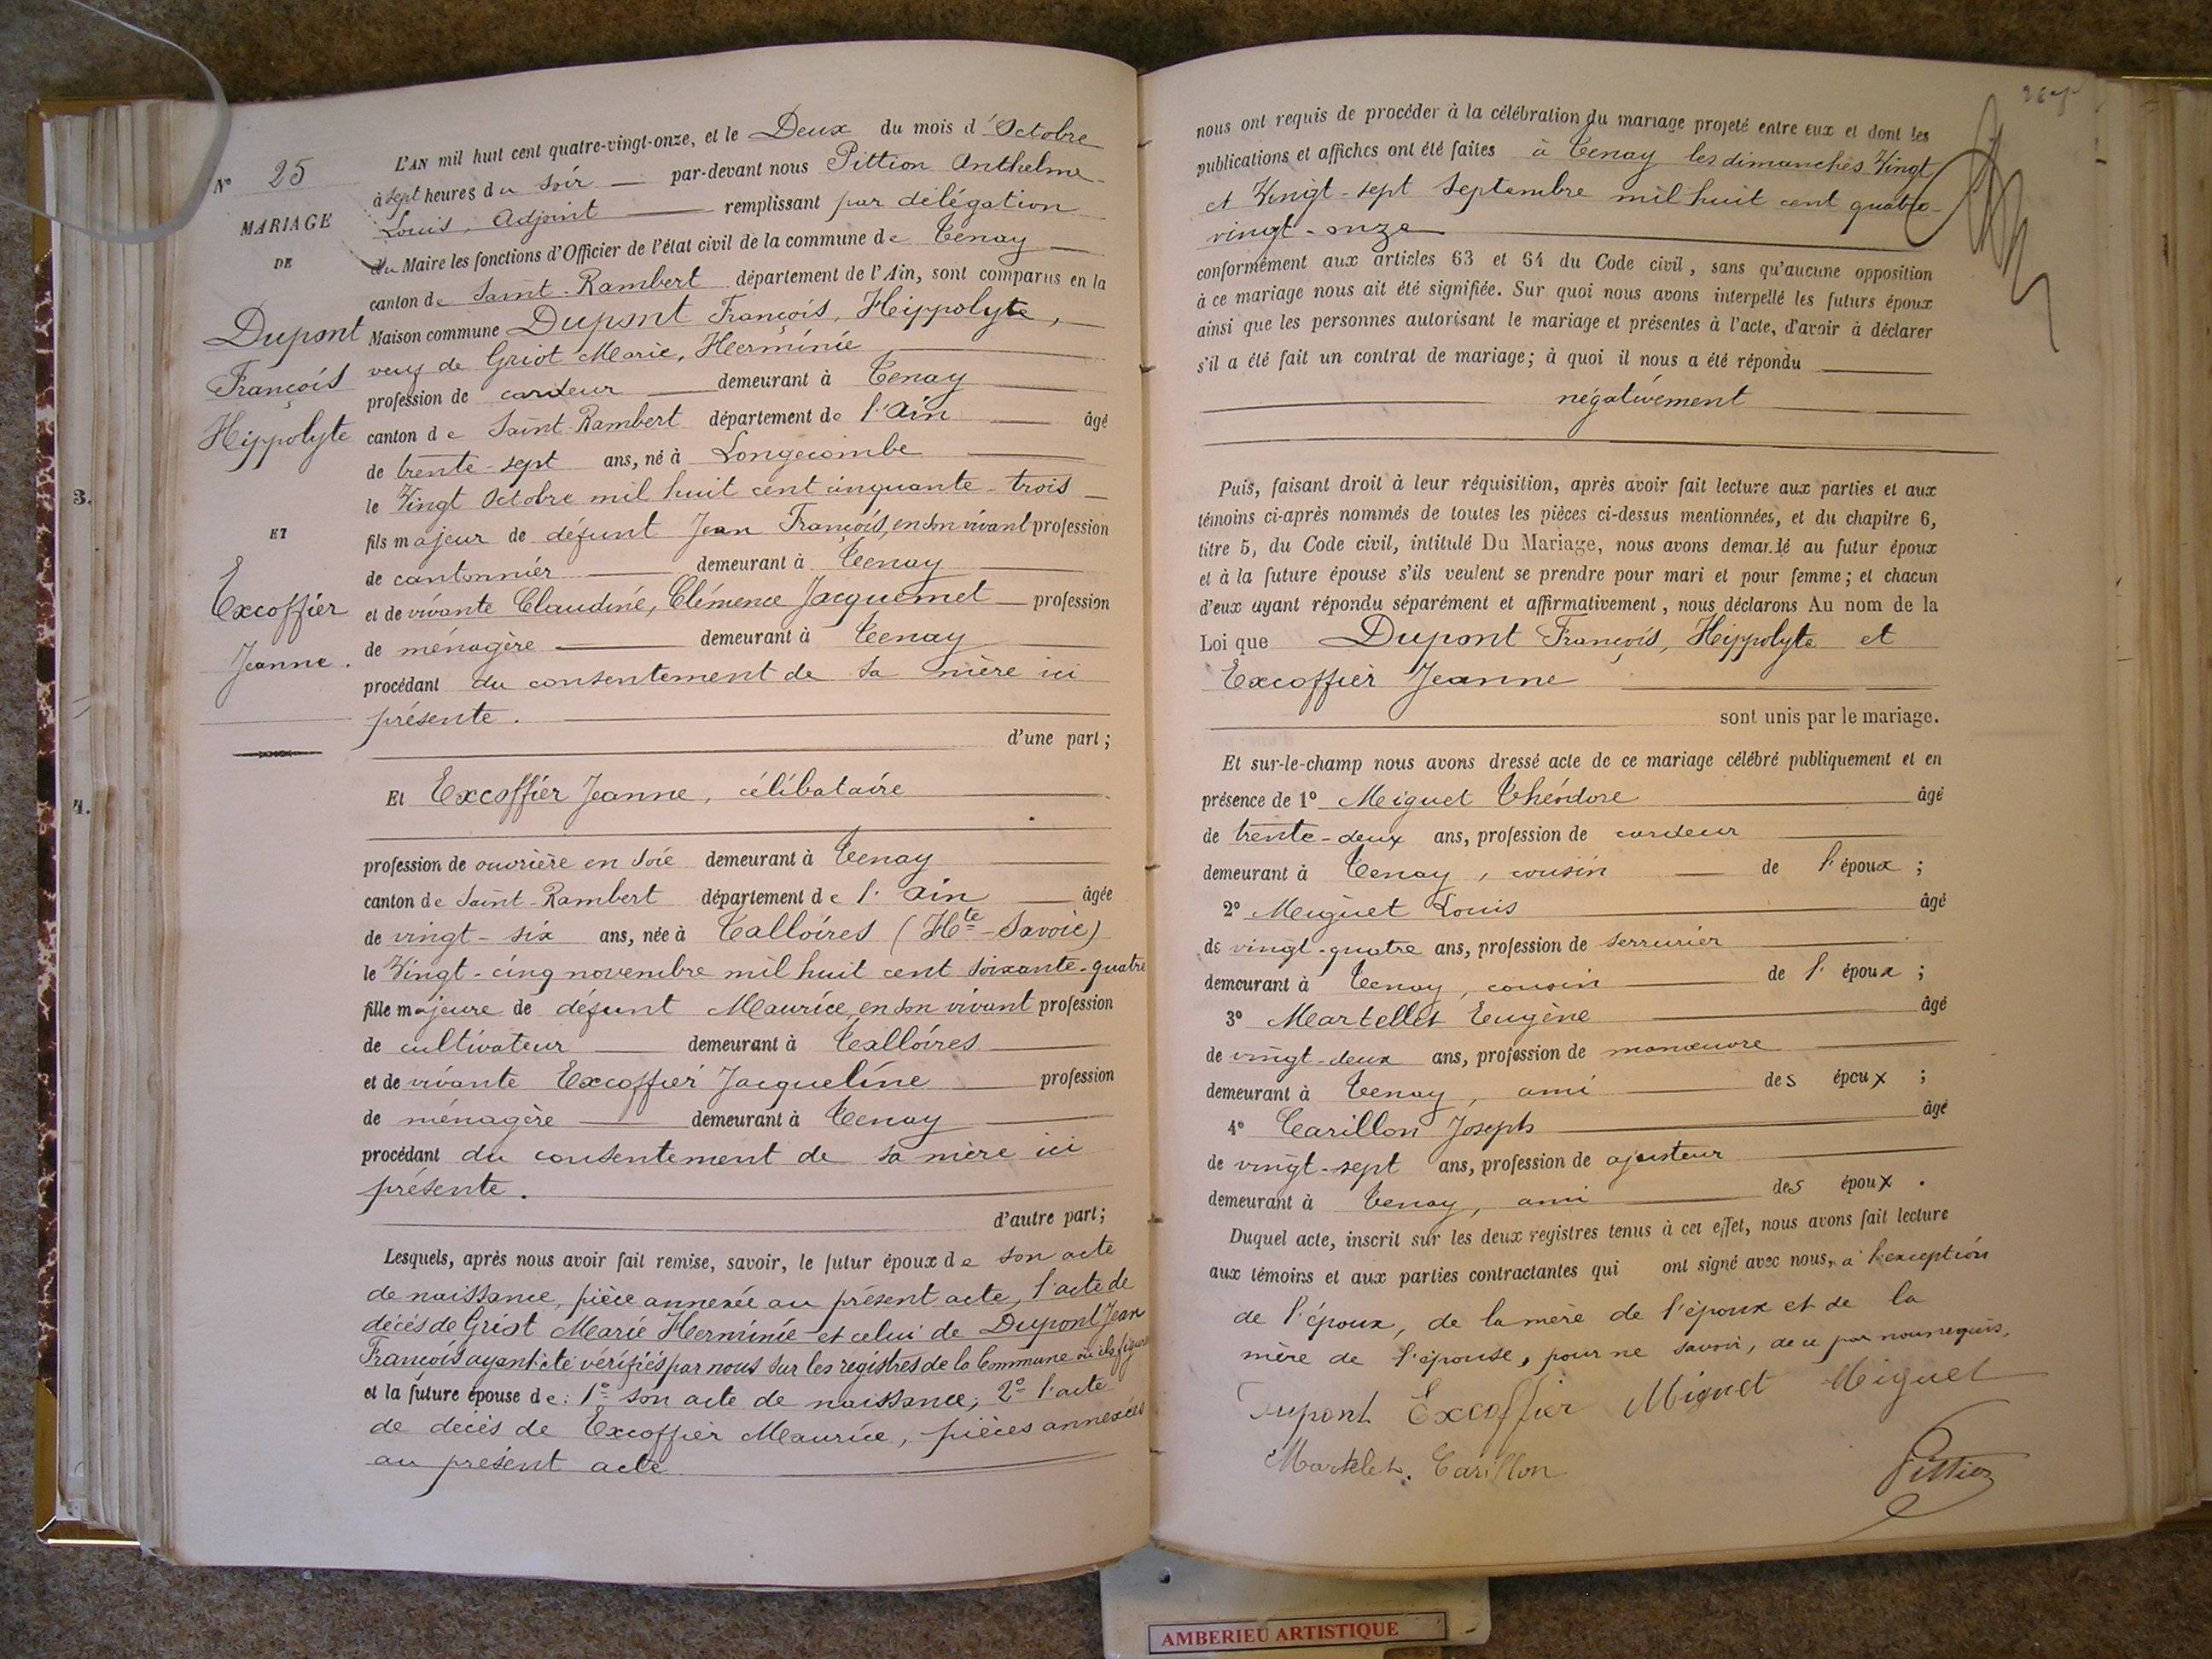 N° 25
MARIAGE
DE
Dupont
François
Hippolyte
ET
Excoffier
Jeanne.
3.
4.
L'AN mil huit cent quatre-vingt-onze, et le Deux du mois d'Octobre
à sept heures du soir par-devant nous Pittion Anthelme
Louis, Adjoint remplissant par délégation
du Maire les fonctions d'Officier de l'état civil de la commune de Tenay
canton de Saint-Rambert département de l'Ain, sont comparus en la
Maison commune Dupont François, Hippolyte,
veuf de Griot Marie, Herminie
profession de cardeur demeurant à Tenay
canton de Saint-Rambert département de l'Ain âgé
de trente-sept ans, né à Longecombe
le Vingt Octobre mil huit cent cinquante-trois
fils majeur de défunt Jean François, en son vivant profession
de cantonnier demeurant à Tenay
et de vivante Claudine, Clémence Jacquemet profession
de ménagère demeurant à Tenay
procédant du consentement de sa mère ici
présente.
d'une part;
Et Excoffier Jeanne, célibataire
profession de ouvrière en soie demeurant à Tenay
canton de Saint-Rambert département de l'Ain âgée
de vingt-six ans, née à Talloires (Hte-Savoie)
le Vingt-cinq novembre mil huit cent soixante-quatre
fille majeure de défunt Maurice, en son vivant profession
de cultivateur demeurant à Talloires
et de vivante Excoffier Jacqueline profession
de ménagère demeurant à Tenay
procédant du consentement de sa mère ici
présente.
d'autre part;
Lesquels, après nous avoir fait remise, savoir, le futur époux de son acte
de naissance, pièce annexée au présent acte, l'acte de
décès de Griot Marie Herminie et celui de Dupont Jean
François ayant été vérifiés par nous sur les registres de la Commune où ils figurent
et la future épouse de: 1° son acte de naissance; 2° l'acte
de décès de Excoffier Maurice, pièces annexées
au présent acte
nous ont requis de procéder à la célébration du mariage projeté entre eux et dont les
publications et affiches ont été faites à Tenay les dimanches Vingt
et Vingt-sept Septembre mil huit cent quatre-
vingt-onze
conformément aux articles 63 et 64 du Code civil, sans qu'aucune opposition
à ce mariage nous ait été signifiée. Sur quoi nous avons interpellé les futurs époux
ainsi que les personnes autorisant le mariage et présentes à l'acte, d'avoir à déclarer
s'il a été fait un contrat de mariage; à quoi il nous a été répondu
négativement
Puis, faisant droit à leur réquisition, après avoir fait lecture aux parties et aux
témoins ci-après nommés de toutes les pièces ci-dessus mentionnées, et du chapitre 6,
titre 5, du Code civil, intitulé Du Mariage, nous avons demandé au futur époux
et à la future épouse s'ils veulent se prendre pour mari et pour femme; et chacun
d'eux ayant répondu séparément et affirmativement, nous déclarons Au nom de la
Loi que Dupont François, Hippolyte et
Excoffier Jeanne
sont unis par le mariage.
Et sur-le-champ nous avons dressé acte de ce mariage célébré publiquement et en
présence de 1° Meiguet Théodore âgé
de trente-deux ans, profession de cardeur
demeurant à Tenay, cousin de l'époux;
2° Meiguet Louis âgé
de vingt-quatre ans, profession de serrurier
demeurant à Tenay, cousin de l'époux;
3° Martellet Eugène âgé
de vingt-deux ans, profession de manœuvre
demeurant à Tenay, ami des époux;
4° Carillon Joseph âgé
de vingt-sept ans, profession de ajusteur
demeurant à Tenay, ami des époux.
Duquel acte, inscrit sur les deux registres tenus à cet effet, nous avons fait lecture
aux témoins et aux parties contractantes qui ont signé avec nous, à l'exception
de l'époux, de la mère de l'époux et de la
mère de l'épouse, pour ne savoir, de ce par nous requis,
Dupont Excoffier Miguet Meiguet
Martelet. Carillon Pittion
AMBERIEU ARTISTIQUE